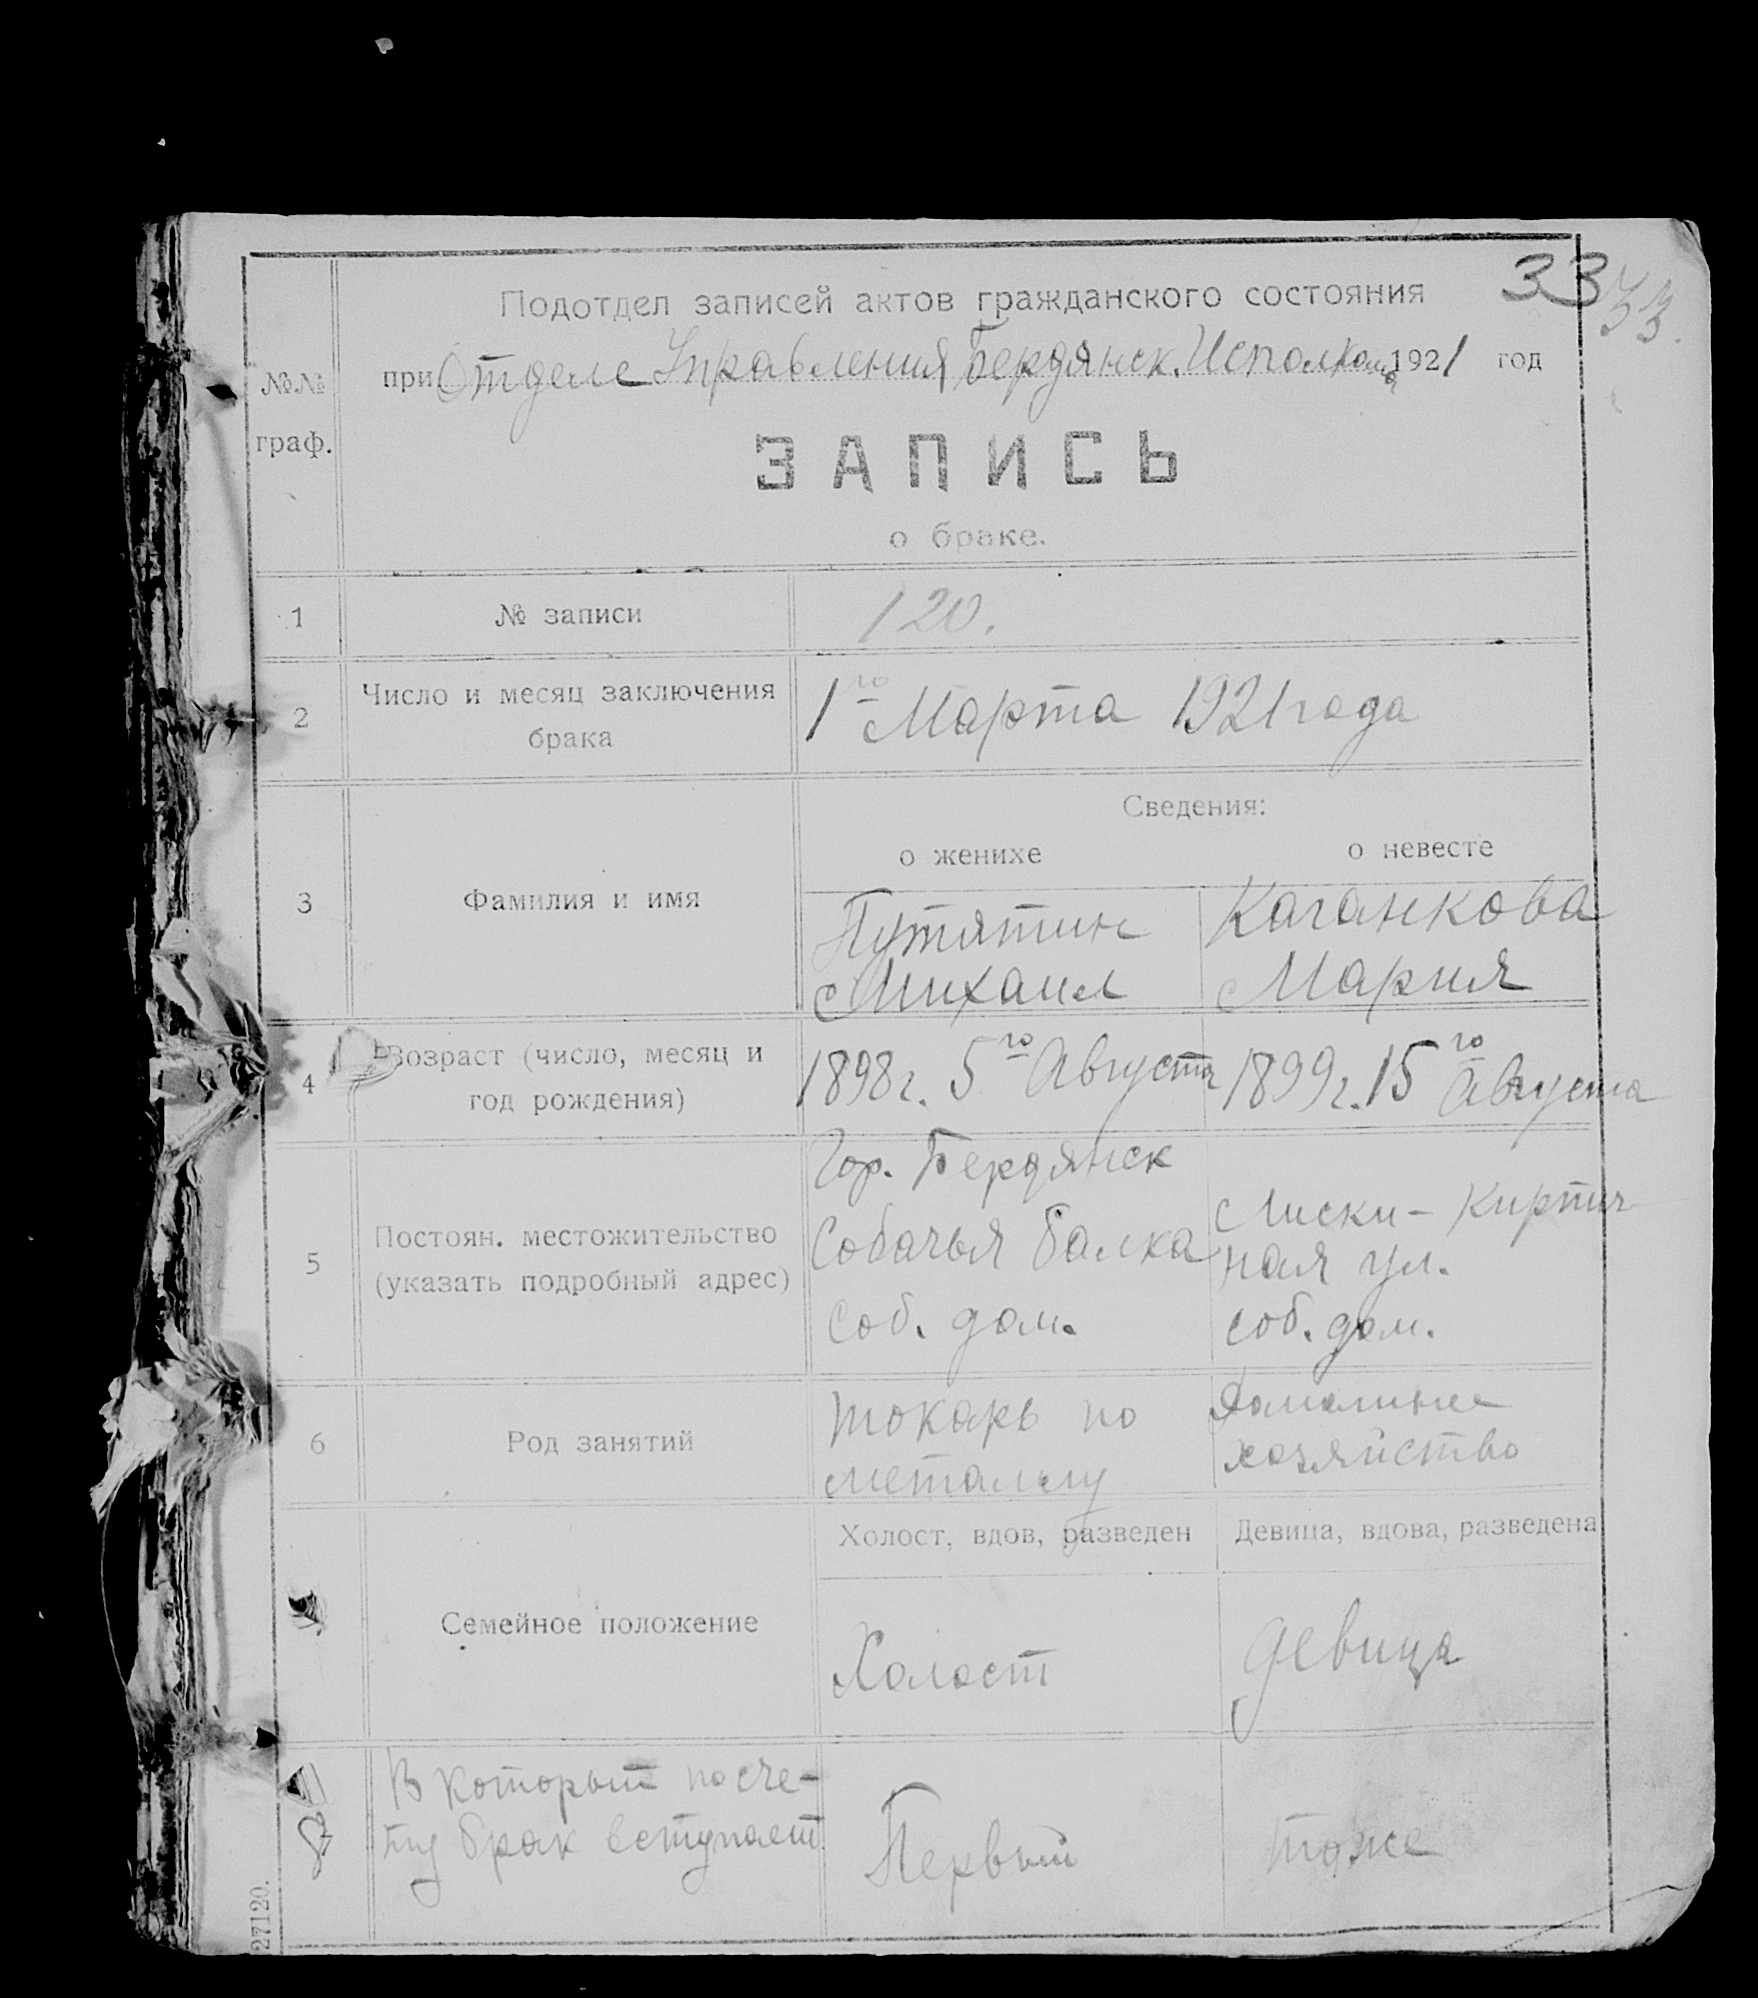 33 33.
Подотдел записей актов гражданского состояния
при Отделе Управления Бердянск. Исполкома 1921 год
№№
граф.
ЗАПИСЬ
о браке.
1 № записи 120.
2 Число и месяц заключения брака 1го Марта 1921 года
Сведения:
о женихе о невесте
3 Фамилия и имя
Путятин Каганкова
Михаил Мария
4 Возраст (число, месяц и
год рождения)
1898г. 5го Августа 1899г. 15го Августа
5 Постоян. местожительство
(указать подробный адрес)
Гор. Бердянск
Собачья Балка Лиски - Кирпич
ная ул.
соб. дом. соб. дом.
6 Род занятий
токарь по Домашнее
металлу хозяйство
Холост, вдов, разведен Девица, вдова, разведена
Семейное положение
Холост девица
В который по сче-
ту брак вступает
Первый тоже
27120.